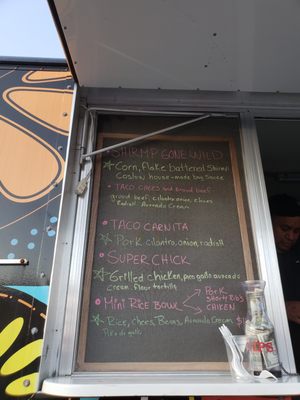 SHRIMP GONE WILD
Corn, Flake battered Shrimp
Caslaw house-made bag Sauce
TACO CACES and Ground beef
ground beef, cilantro onion, cheese
Radish Avocado Cream
TACO CARNITA
Pork cilantro, onion, radish
SUPER CHICK
Grilled chicken, pico gallo avocado
cream. Flour tortilla
Mini RICE Bowl
PORK
Short Ribs
CHIKEN
Rice, chees, Beans, Avocado Cream
Pico de gallo
TIPS